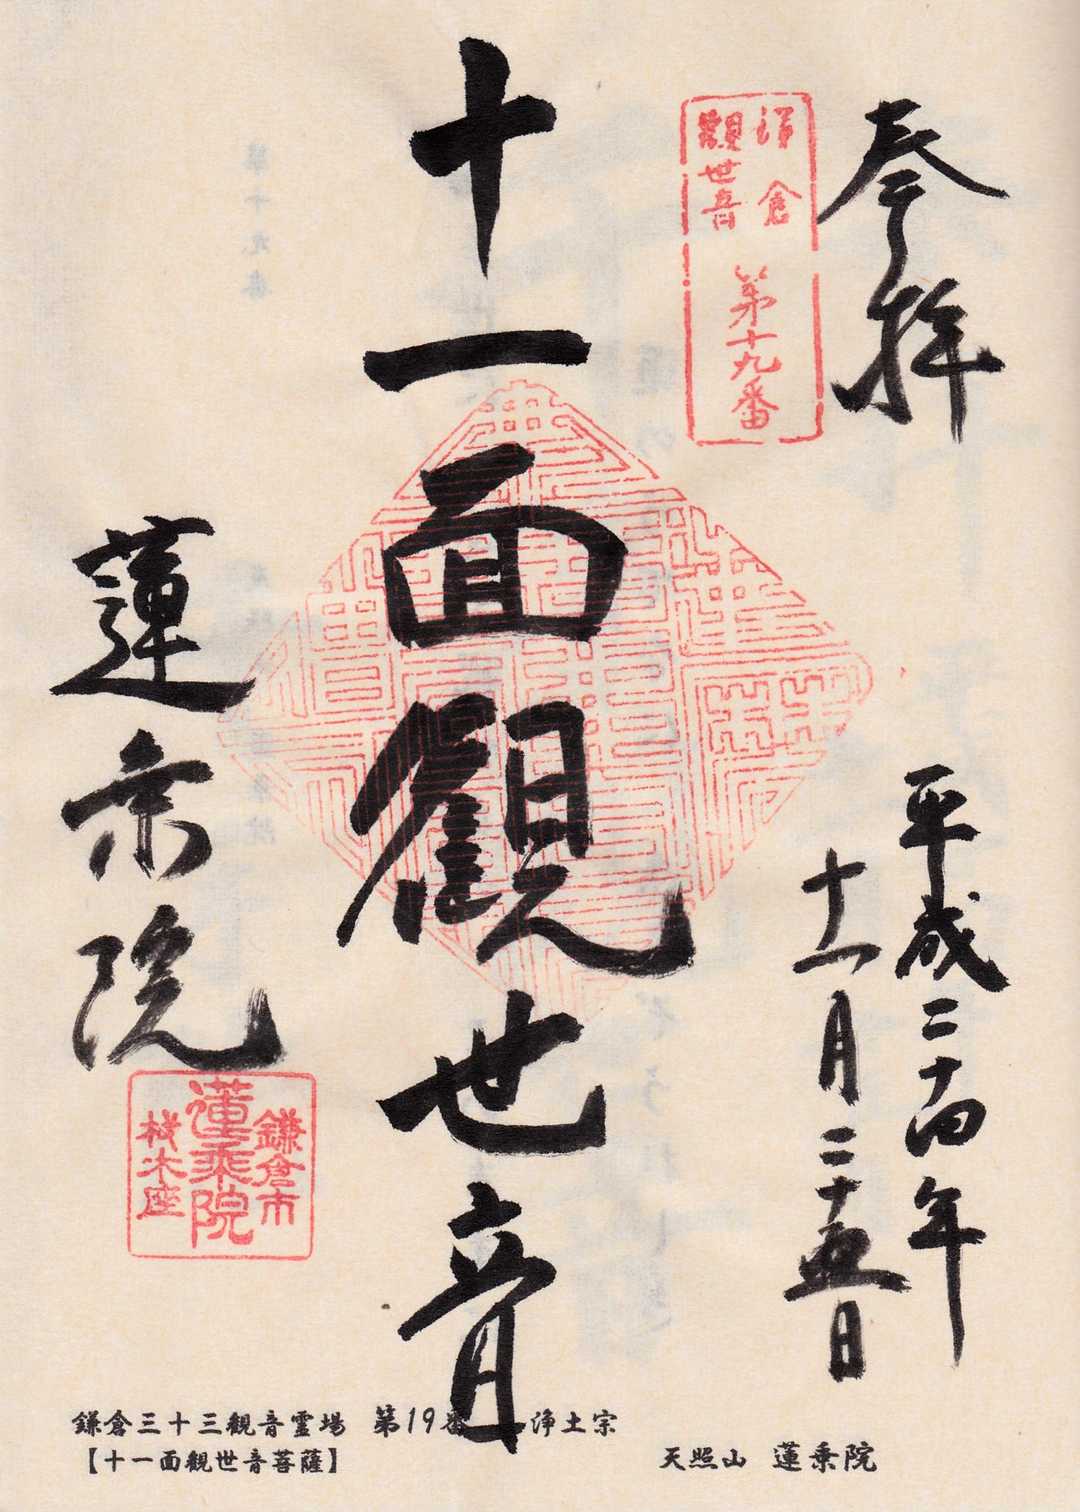 奉拝
鎌倉
観世音
第十九番
平成二十四年
十一月二十五日
十一面觀世音
蓮乗院
鎌倉市
蓮乗院
材木座
鎌倉三十三観音霊場 第19番 浄土宗
【十一面観世音菩薩】
天照山 蓮乗院